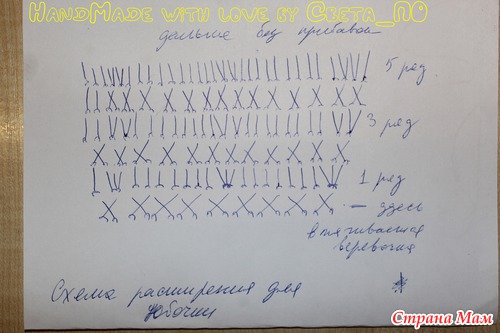 HandMade with love by Света_ПО
дальше без прибавок
5 ряд
3 ряд
1 ряд
— здесь
втягивается
веревочка
Схема расширения для
юбочки
Страна Мам